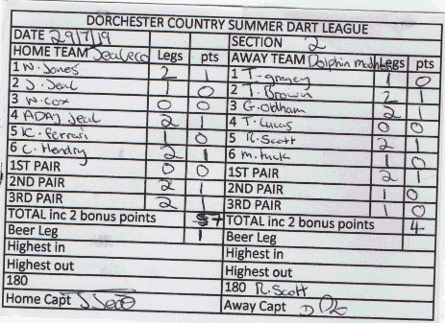 DORCHESTER COUNTRY SUMMER DART LEAGUE
DATE 29/7/19 SECTION 2
HOME TEAM Jealreco Legs pts AWAY TEAM Dolphin Legs pts
1 W. Jones 2 1 1 T. gregey 1 0
2 J. Jeal 1 0 2 T. Brown 2 1
3 W. COX 0 0 3 G. Oldham 2 1
4 ADAM Jeal 2 1 4 T. Lucas 0 0
5 K. ferrari 1 0 5 R. Scott 2 1
6 C. Hendry 2 1 6 M. tuck 1 0
1ST PAIR 0 0 1ST PAIR 2 1
2ND PAIR 2 1 2ND PAIR 1 0
3RD PAIR 2 1 3RD PAIR 1 0
TOTAL inc 2 bonus points 7 TOTAL inc 2 bonus points 4
Beer Leg 1 Beer Leg
Highest in Highest in
Highest out Highest out
180 180 R. Scott
Home Capt J. Jeal Away Capt